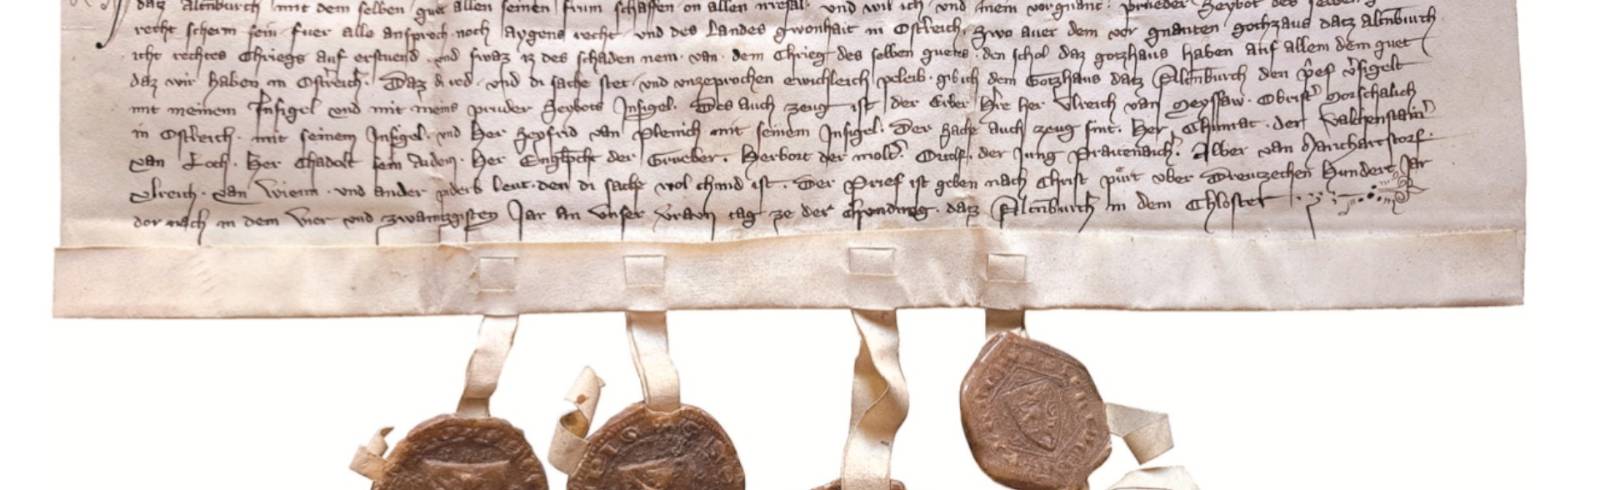 datz Altenburch mit dem selben guet allen seinen frum schaffen on allen irresal · vnd wil ich vnd mein vorgnant · prueder Seybot des selben
recht scherm sein fuer alle ansprech noch aygens recht vnd des Landes gwonhait in Osterreich · Swo auer dem vor gnanten gotzhaus datz altenburch
icht rechtes Chriegs auf erstuend · vnd swaz iz des schaden nem · van · dem Chrieg des selben guets · den schol daz gotzhaus haben auf allem dem guet
daz wir haben in Ostreich · Daz di red · vnd di sache stet vnd vnzeprochen ewichleich peleib · gib ich dem Gotzhaus datz Altenburch den prief versigelt
mit meinem Insigel vnd mit meins prueder Seybots Insigel · Des auch zeug ist der Erber Herre her Vlreich van Meyssaw · Obrister Morschalich
in Ostreich · mit seinem Insigel · vnd Her Seyfrid van Plenich mit seinem Insigel · Der sache auch zeug sint · Her Chunrat · der Valchenstainer
van Loch · Her Chadolt sein Aidem · Her Englprecht der Grueber · Herbort der · Ortolf · der Jung Prautenaicher · Alber van Marichartstorf ·
Vlreich · van Wienn · vnd ander piderb leut · den di sache wol chund ist · Der Prief ist geben nach Christ puert vber Dreuzechen Hundert Jar
dor nach in dem Vier vnd zwaintzgisten Jar an vnser vrawn tag ze der chundung · datz Altenburch in dem Chloster